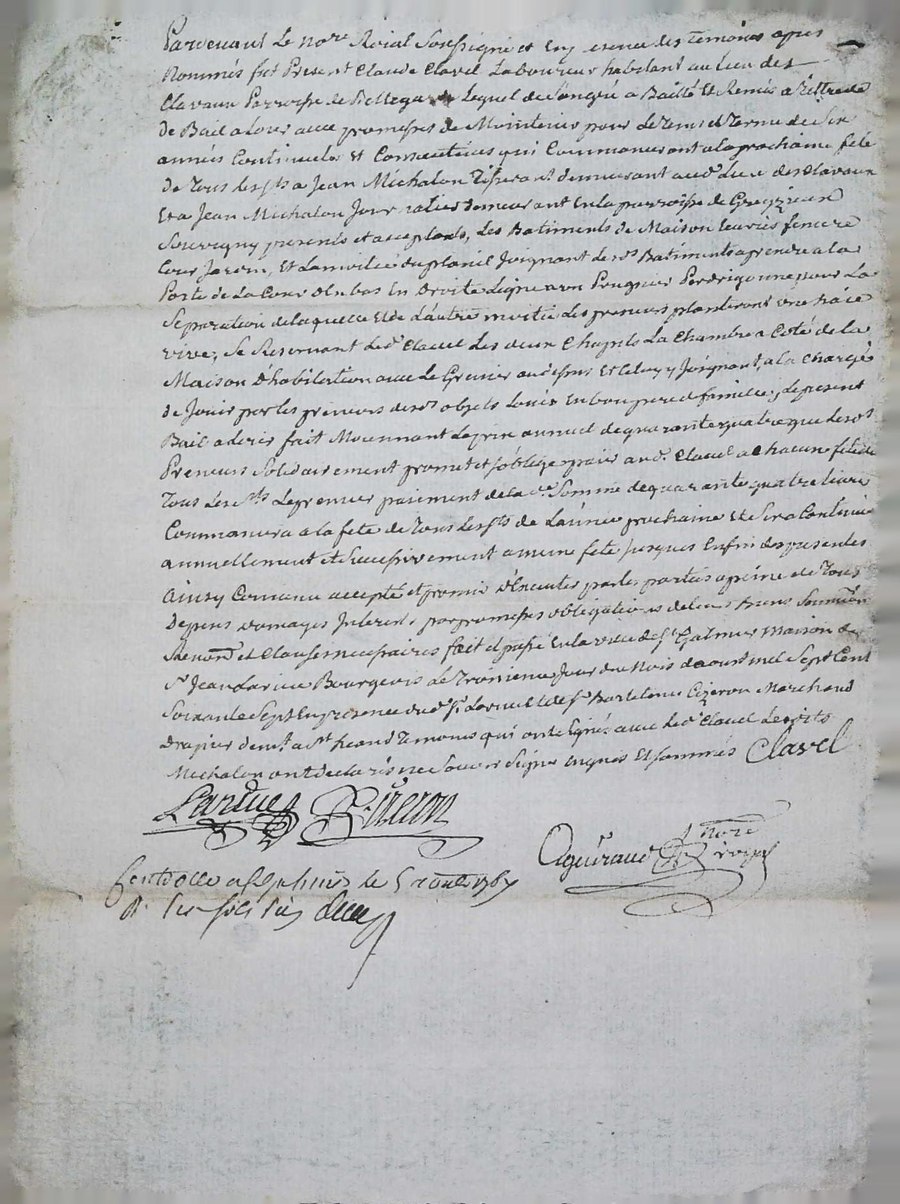 Pardevant Le no.re Roial Soussigné et En presence des Temoins apres
Nommés fut Present Claude Clavel Laboureur habitant au Lieu des
Clavaux Parroisse de Bellegarde Lequel de son gré a Baillé Et Remis a Tittre de
de Bail a Louer avec promesses de Maintenir pour Le Tems et Terme de Six
années Continuelles Et Consecutives qui Commanceront a la prochaine fete
de Tous les Sts a Jean Michalon Tisserant demeurant aud. Lieu des Clavaux
Et a Jean Michalon Journalier demeurant En la parroisse de
Souvigny presents et acceptants, Les Batiments de Maison Ecuries feniere
Cour Jardin, Et La moitié du planil Joignant des.ts Batiments a prendre a la
Porte de La Cour D'Enbas En Droite Ligne a un Prugner Perdrigonne pour La
Separation de laquelle Et de L'autre moitié Les preneurs planteront une haie
vive, Se Reservant Led.t Clavel Les deux Chapits La Chambre a Coté de la
Maison D'habitation avec Le Grenier au dessus Et Joignant, a la Charge
de Jouir par les preneurs des.ts objets Loués En bon pere de famille, Le present
Bail a ferme fait Moiennant Le prix annuel de quarante quatre que Les.ts
Preneurs Solidairement promettent et s'obligent paier aud. Clavel a Chacune fete de
Tous Les Sts Le premier paiement de la d.e Somme de quarante quatre livres
Commancera a la fete de Tous Les Sts de L'année prochaine Et Sera Continué
annuellement et Successivement a meme fete Jusques Enfin des presentes
Ainsy Convenu accepté et promis D'Executer par les parties a peine de Tous
Depens Domages Interets par promesses obligations de leurs biens Soumissions
Renon.on et Clauses necessaires fait et passé En la ville de St Galmier Maison de
S.r Jean Larüe Bourgeois Le Troisieme Jour du Mois d'aoust mil Sept Cent
Soixante Sept En presence dud. S.r Larue Et de S.r Bartelemi Cizeron Marchand
Drapier dem.t a St heand Temoins qui ont Signé avec Led.t Clavel Les dits
Michalon ont declaré ne Savoir Signer Enquis Et Sommés Clavel
Larüe B. Cizeron
Aguiraud No.re Roial
Controllé a St Galmier le 5 aoust 1767
R. six sols six den